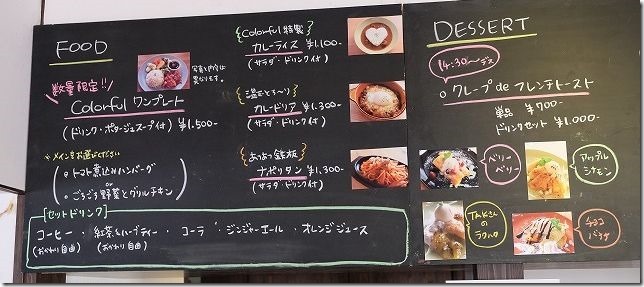 FOOD
数量限定!!
Colorful ワンプレート
(ドリンク・ポタージュスープ付) ¥1.500-
写真と内容は
異なります。
※メインをお選びください
トマト煮込みハンバーグ
or
ごろごろ野菜とグリルチキン
Colorful 特製
カレーライス ¥1.100-
(サラダ・ドリンク付)
温玉とろ〜り
カレードリア ¥1.300-
(サラダ・ドリンク付)
あつあつ鉄板
ナポリタン ¥1.300-
(サラダ・ドリンク付)
[セットドリンク]
コーヒー・紅茶&ハーブティー・コーラ・ジンジャーエール・オレンジジュース
(おかわり自由) (おかわり自由)
DESSERT
14:30〜デス
クレープ de フレンチトースト
単品 ¥700-
ドリンクセット ¥1.000-
ベリー
ベリー
アップル
シナモン
TAKさん
の
チョコ
バナナ